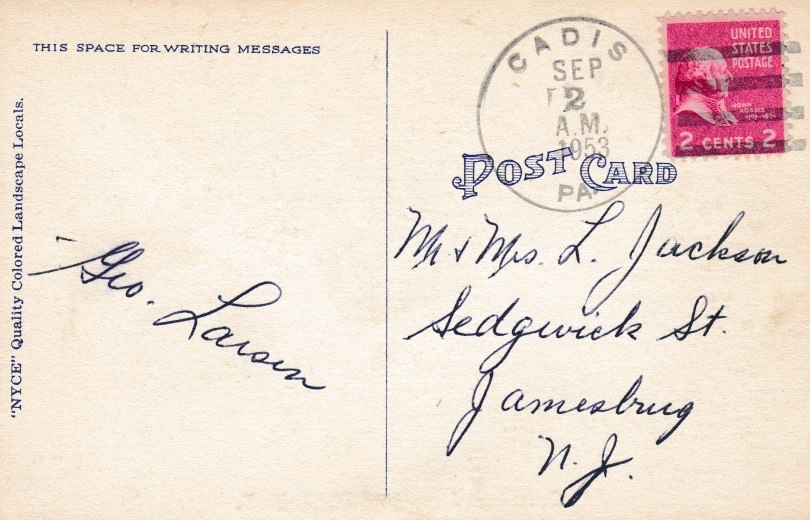 THIS SPACE FOR WRITING MESSAGES
"NYCE" Quality Colored Landscape Locals.
Geo. Larsen
CADIS
SEP
2
A.M.
1953
PA.
UNITED
STATES
POSTAGE
JOHN
ADAMS
2 CENTS 2
POST CARD
Mr & Mrs. L. Jackson
Sedgwick St.
Jamesbrug
N. J.